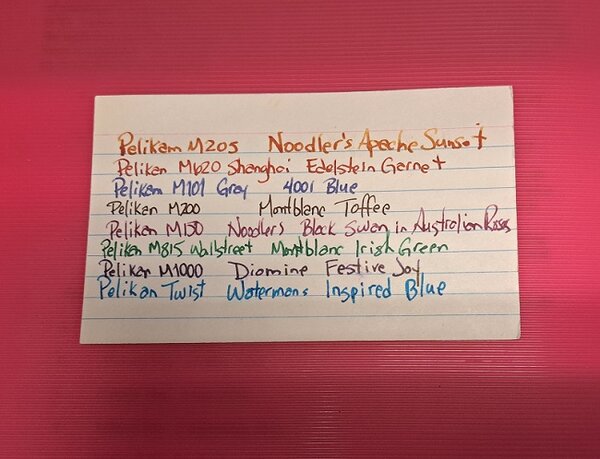 Pelikan M205 Noodler's Apache Sunset
Pelikan M620 Shanghai Edelstein Garnet
Pelikan M101 Gray 4001 Blue
Pelikan M200 Montblanc Toffee
Pelikan M150 Noodlers Black Swan in Australian Roses
Pelikan M815 Wallstreet Montblanc Irish Green
Pelikan M1000 Diamine Festive Joy
Pelikan Twist Watermans Inspired Blue